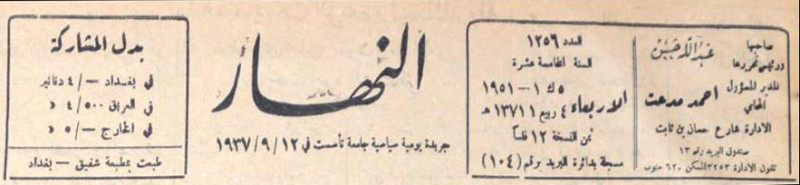 صاحبها
ورئيس تحريرها
عبد الله حسن
المدير المسؤول
المحامي
احمد مدحت
الادارة شارع حسان بن ثابت
صندوق البريد رقم ١٣
تلفون الادارة ٣٢٥٣ المسكن ٦٢٠ جنوب
العدد ١٢٥٦
السنة الخامسة عشرة
الاربعاء
٥ ك ١ – ١٩٥١
٤ ربيع ١ ١٣٧١ هـ
ثمن النسخة ١٢ فلساً
مسجلة بدائرة البريد برقم (١٠٤)
النهار
جريدة يومية سياسية جامعة تأسست في ١٢ / ٩ / ١٩٣٧
بدل المشاركة
في بغداد – / ٤ دنانير
في العراق ٥٠٠ / ٤ «
في الخارج – / ٥ «
طبعت بمطبعة شفيق – بغداد